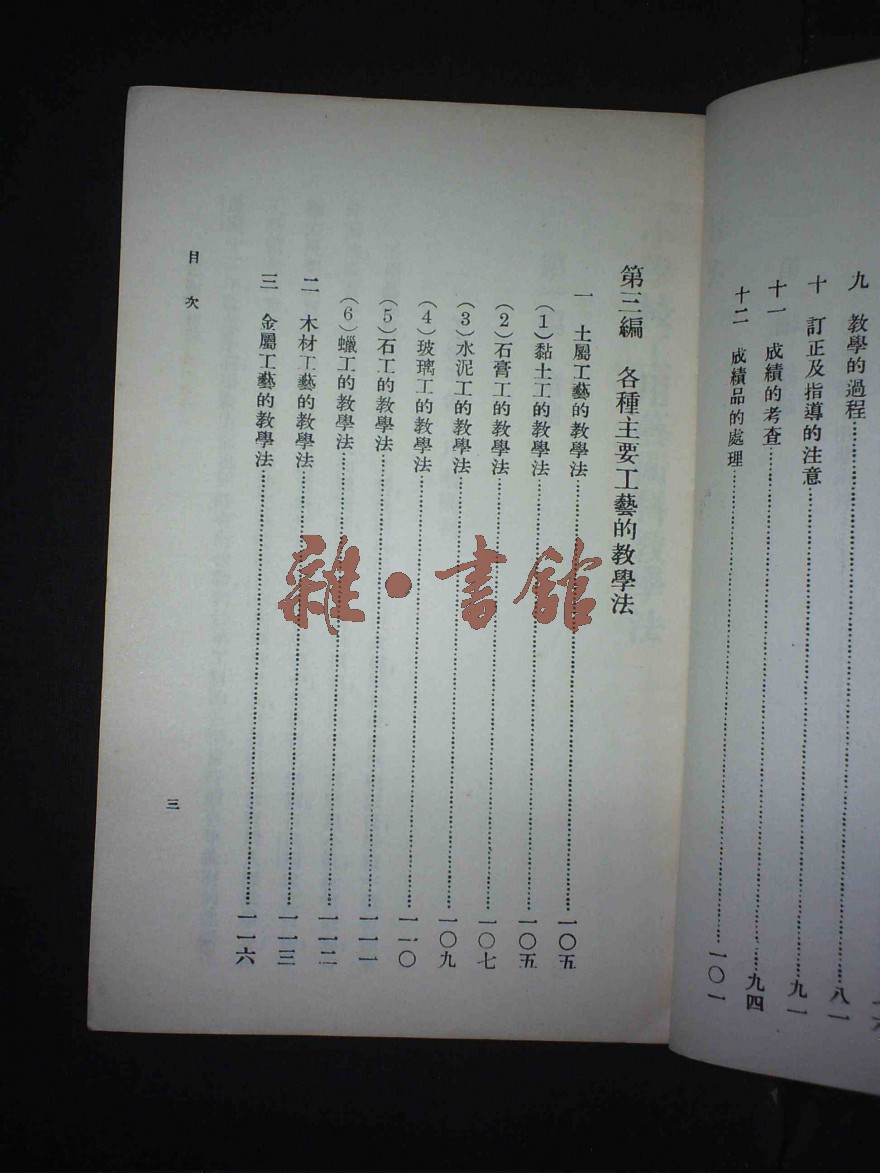 九　教學的過程……八一
十　訂正及指導的注意……九一
十一　成績的考查……九四
十二　成績品的處理……一〇一
第三編　各種主要工藝的教學法
一　土屬工藝的教學法……一〇五
（1）黏土工的教學法……一〇五
（2）石膏工的教學法……一〇七
（3）水泥工的教學法……一〇九
（4）玻璃工的教學法……一一〇
（5）石工的教學法……一一一
（6）蠟工的教學法……一一二
二　木材工藝的教學法……一一三
三　金屬工藝的教學法……一一六
目次
三
雜·書館